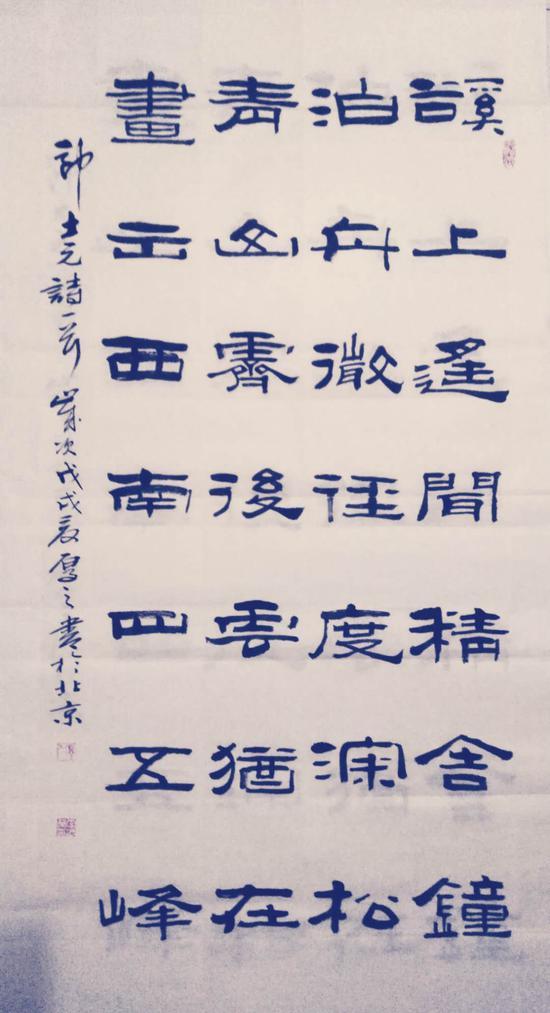 谿上遙聞精舍鐘
泊舟微徑度深松
青山霽後雲猶在
畫出西南四五峰
郎士元詩一首 歲次戊戌夏厚之書於北京